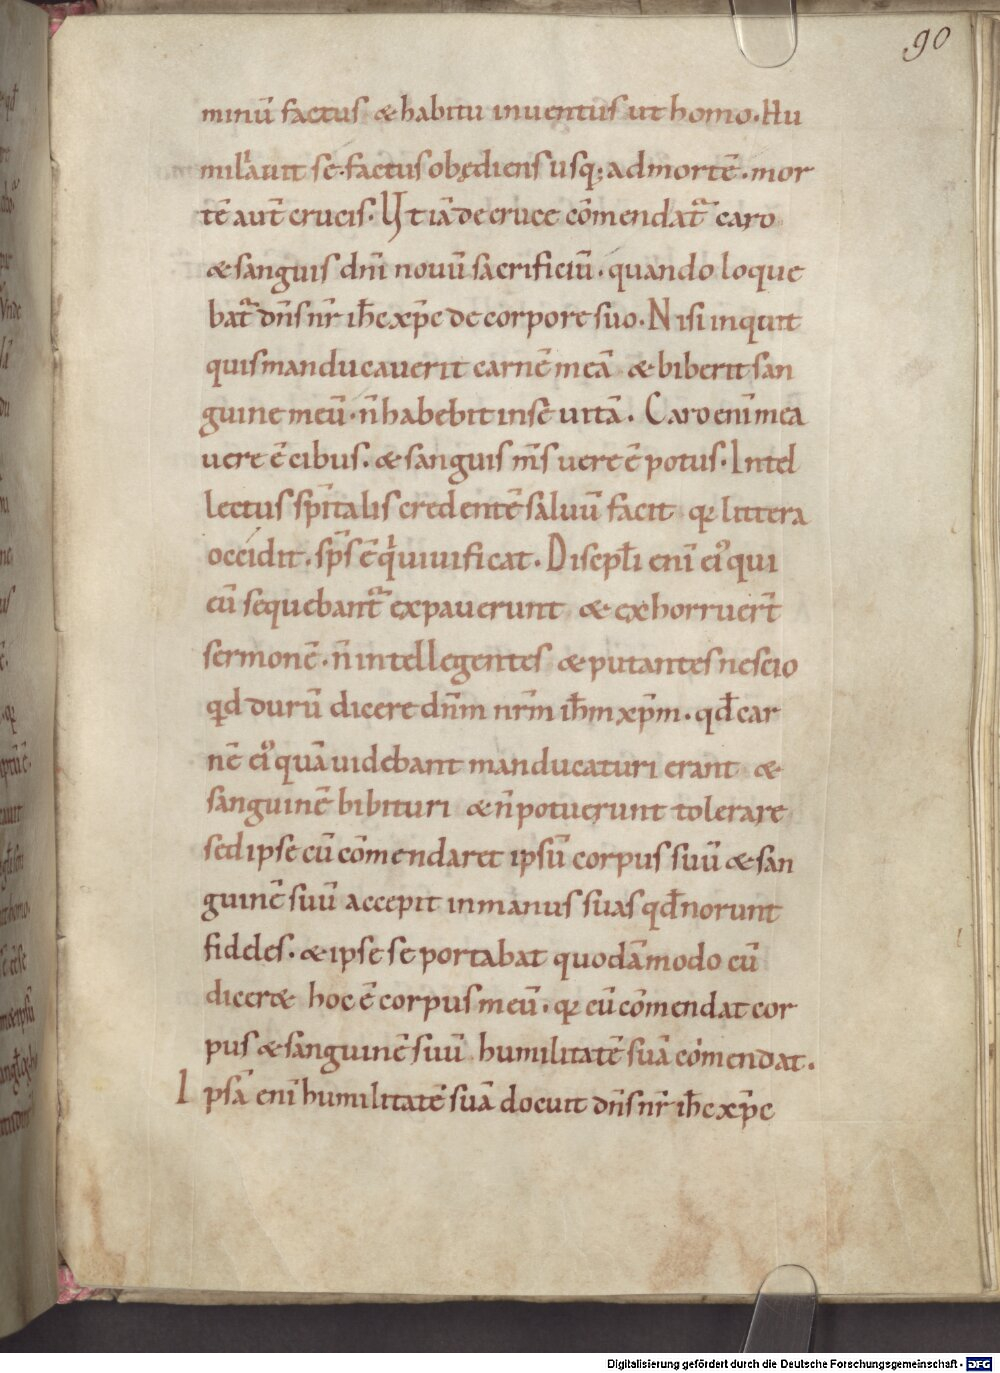 90
minū factus & habitu inventus ut homo. Hu
miliavit sē. factus obędiens usq; ad mortē. mor
tē aut̄ crucis. Ut iā de cruce cōmendat᷑ caro
& sanguis dn̄i novū sacrificiū. quando loque
bat᷑ dn̄s nr̄ ih̄c xp̄c de corpore suo. Nisi inquit
quis manducauerit carnē meā & biberit san
guine meū. n̄ habebit in sē uitā. Caro enī mea
uere ē cibus. & sanguis m̄s uere ē potus. Intel
lectus sp̄italis credentē saluū facit qꝛ littera
occidit. sp̄s ē qͥ uiuificat. Discipl̄i enī eiꝰ qui
cū sequebant᷑ expauerunt & exhorruer̄t
sermonē. n̄ intellegentes & putantes nescio
qd durū dicere dn̄m nr̄m ih̄m xp̄m. qd̄ car
nē eiꝰ quā uidebant manducaturi erant &
sanguinē bibituri & n̄ potuerunt tolerare
sed ipse cū cōmendaret ipsū corpus suū & san
guinē suū accepit in manus suas qd̄ norunt
fideles. & ipse se portabat quodāmodo cū
dicer& hoc ē corpus meū. qꝛ cū cōmendat cor
pus & sanguinē suū humilitatē suā cōmendat.
Ipsā enī humilitatē suā docuit dn̄s nr̄ ih̄c xp̄c
Digitalisierung gefördert durch die Deutsche Forschungsgemeinschaft - DFG